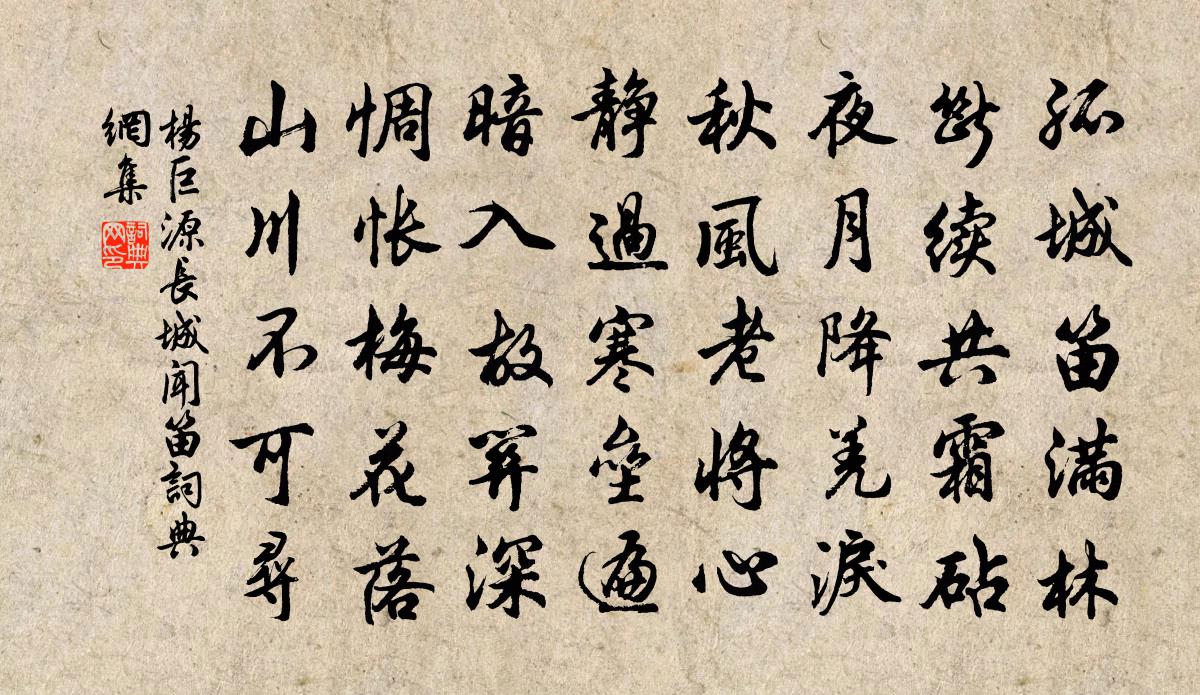 孤城笛滿林
斷续共霜砧
夜月降羌淚
秋風老將心
靜過寒壘遍
暗入故關深
惆悵梅花落
山川不可尋
楊巨源長城聞笛詞典
網集
詞典
网印